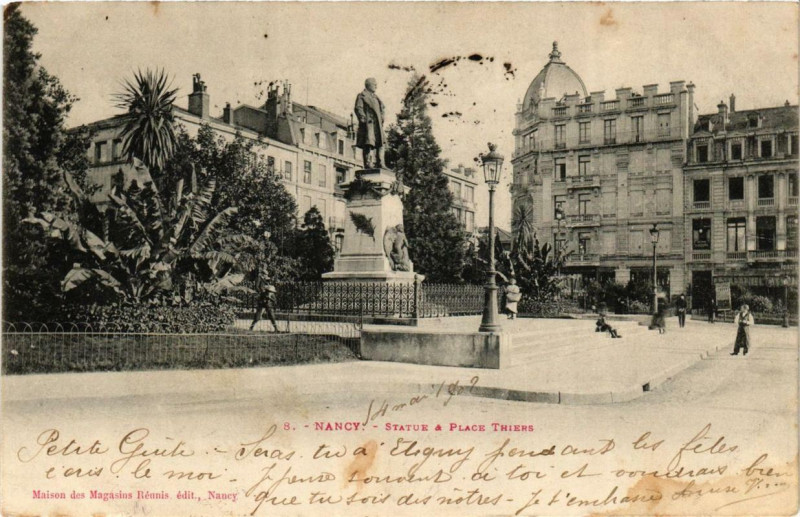 14 mai 1902
8. - NANCY. - STATUE & PLACE THIERS
Petite Güite - Seras-tu à Etigny pendant les fêtes
écris le moi - Je pense souvent à toi et voudrais bien
que tu sois des nôtres - Je t'embrasse
Maison des Magasins Réunis, édit., Nancy